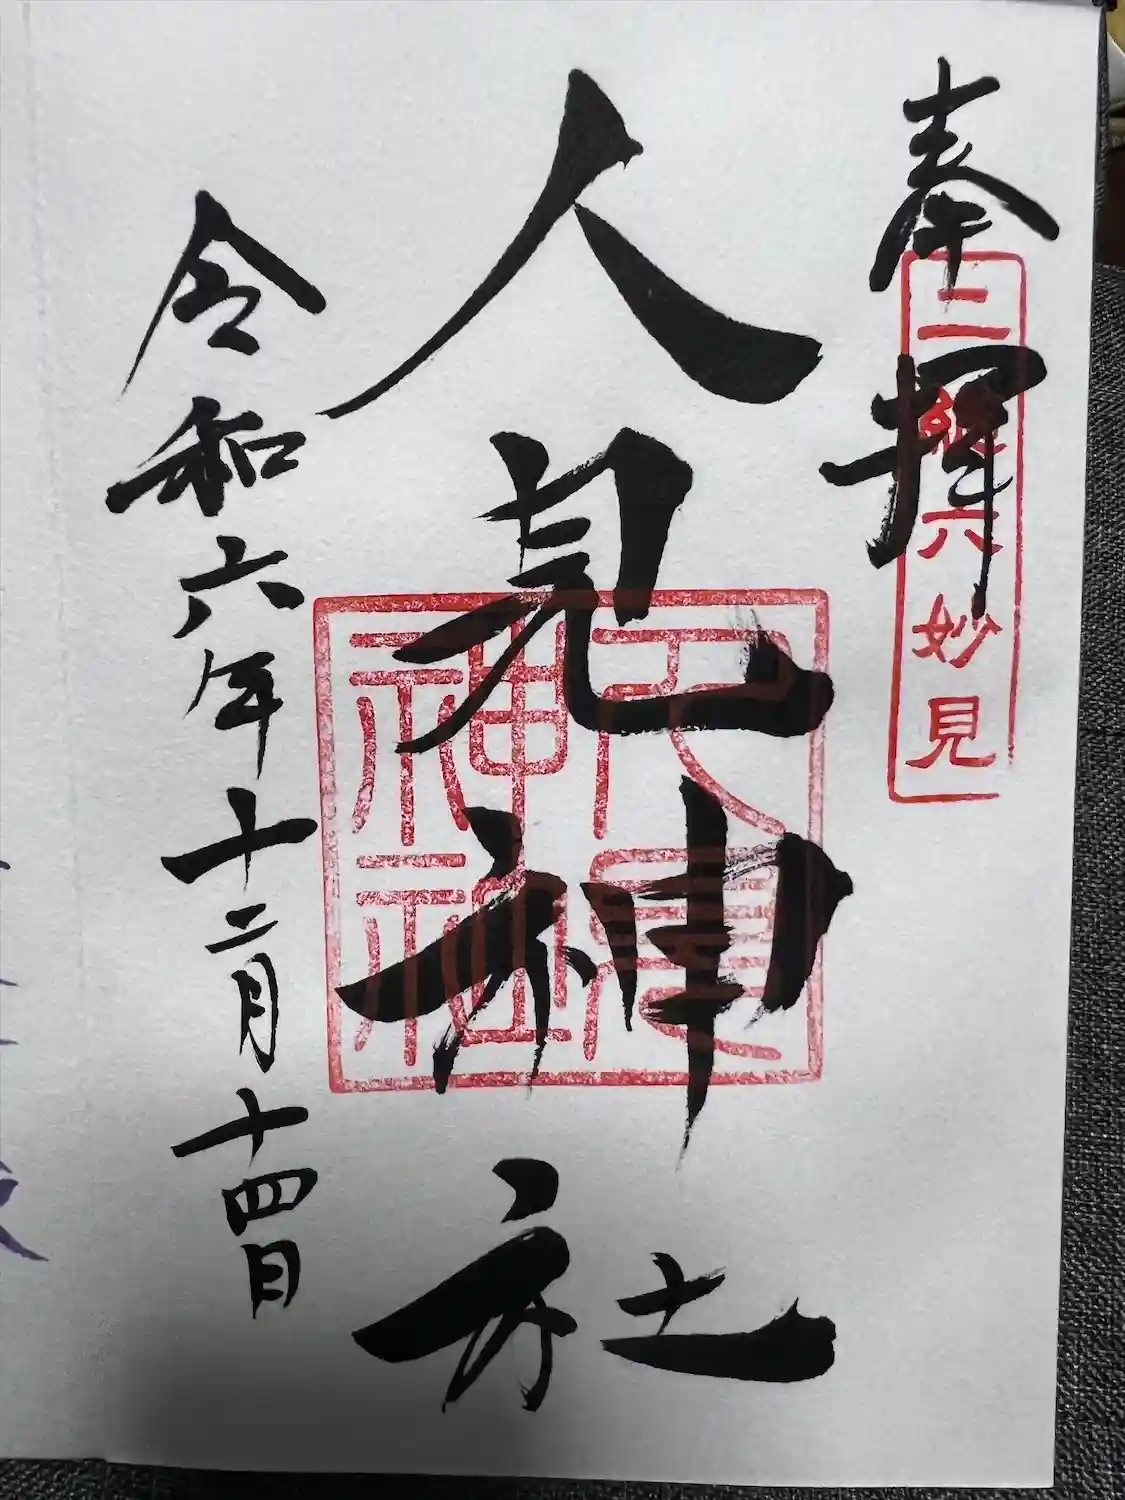 奉拝
三縄六妙見
人見神社
人見神社
令和六年十二月十四日